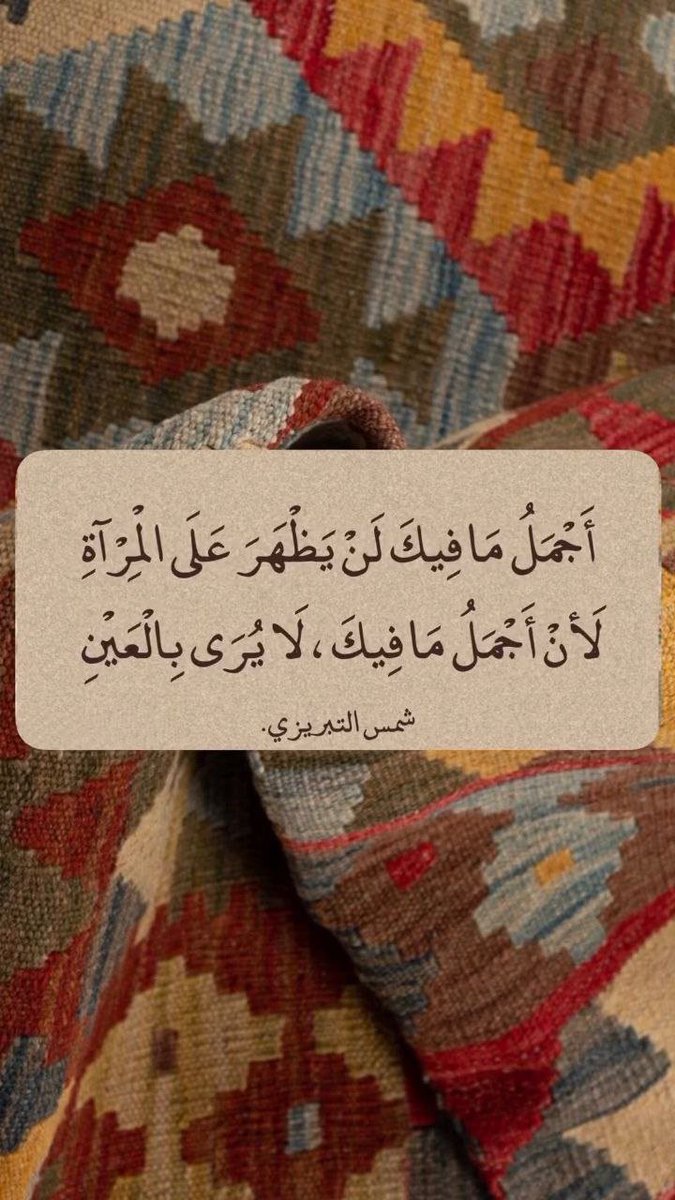 أَجْمَلُ مَا فِيكَ لَنْ يَظْهَرَ عَلَى الْمِرْآةِ
لَأنْ أَجْمَلُ مَا فِيكَ ، لَا يُرَى بِالْعَيْنِ
شمس التبريزي.